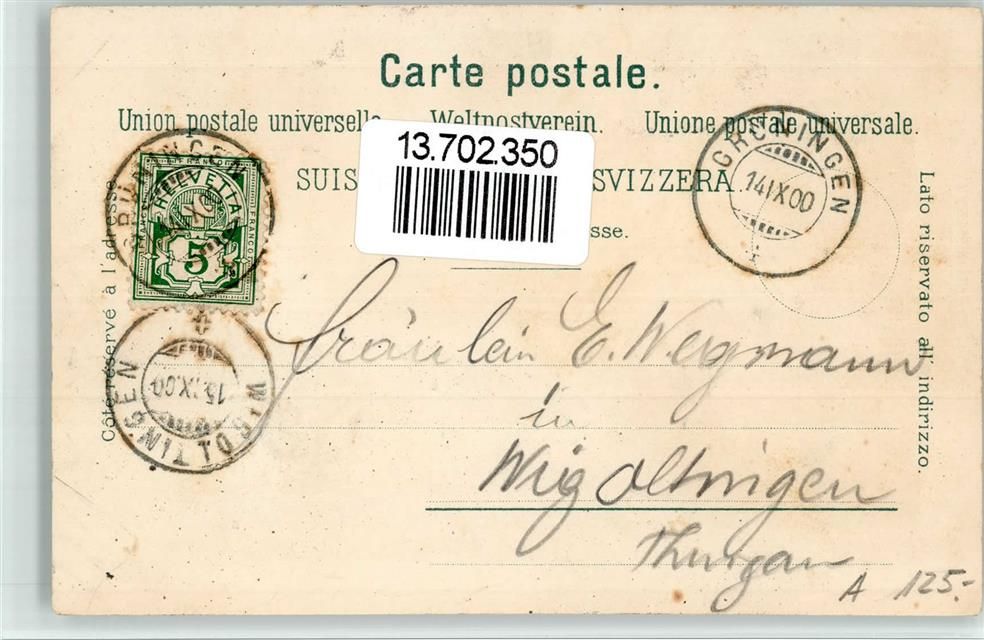 Carte postale.
Union postale universelle Weltpostverein. Unione postale universale.
13.702.350
SUIS SVIZZERA.
sse.
Côté réservé à l'adresse.
Lato riservato all' indirizzo.
FRANCO
HELVETIA
FRANCO
5
GRÜNINGEN
14 IX 00
GRÜNINGEN
14 IX 00
WIGOLTINGEN
15. IX 00
Fräulein E. Wegmann
in
Wigoltingen
Thurgau
A 125.-